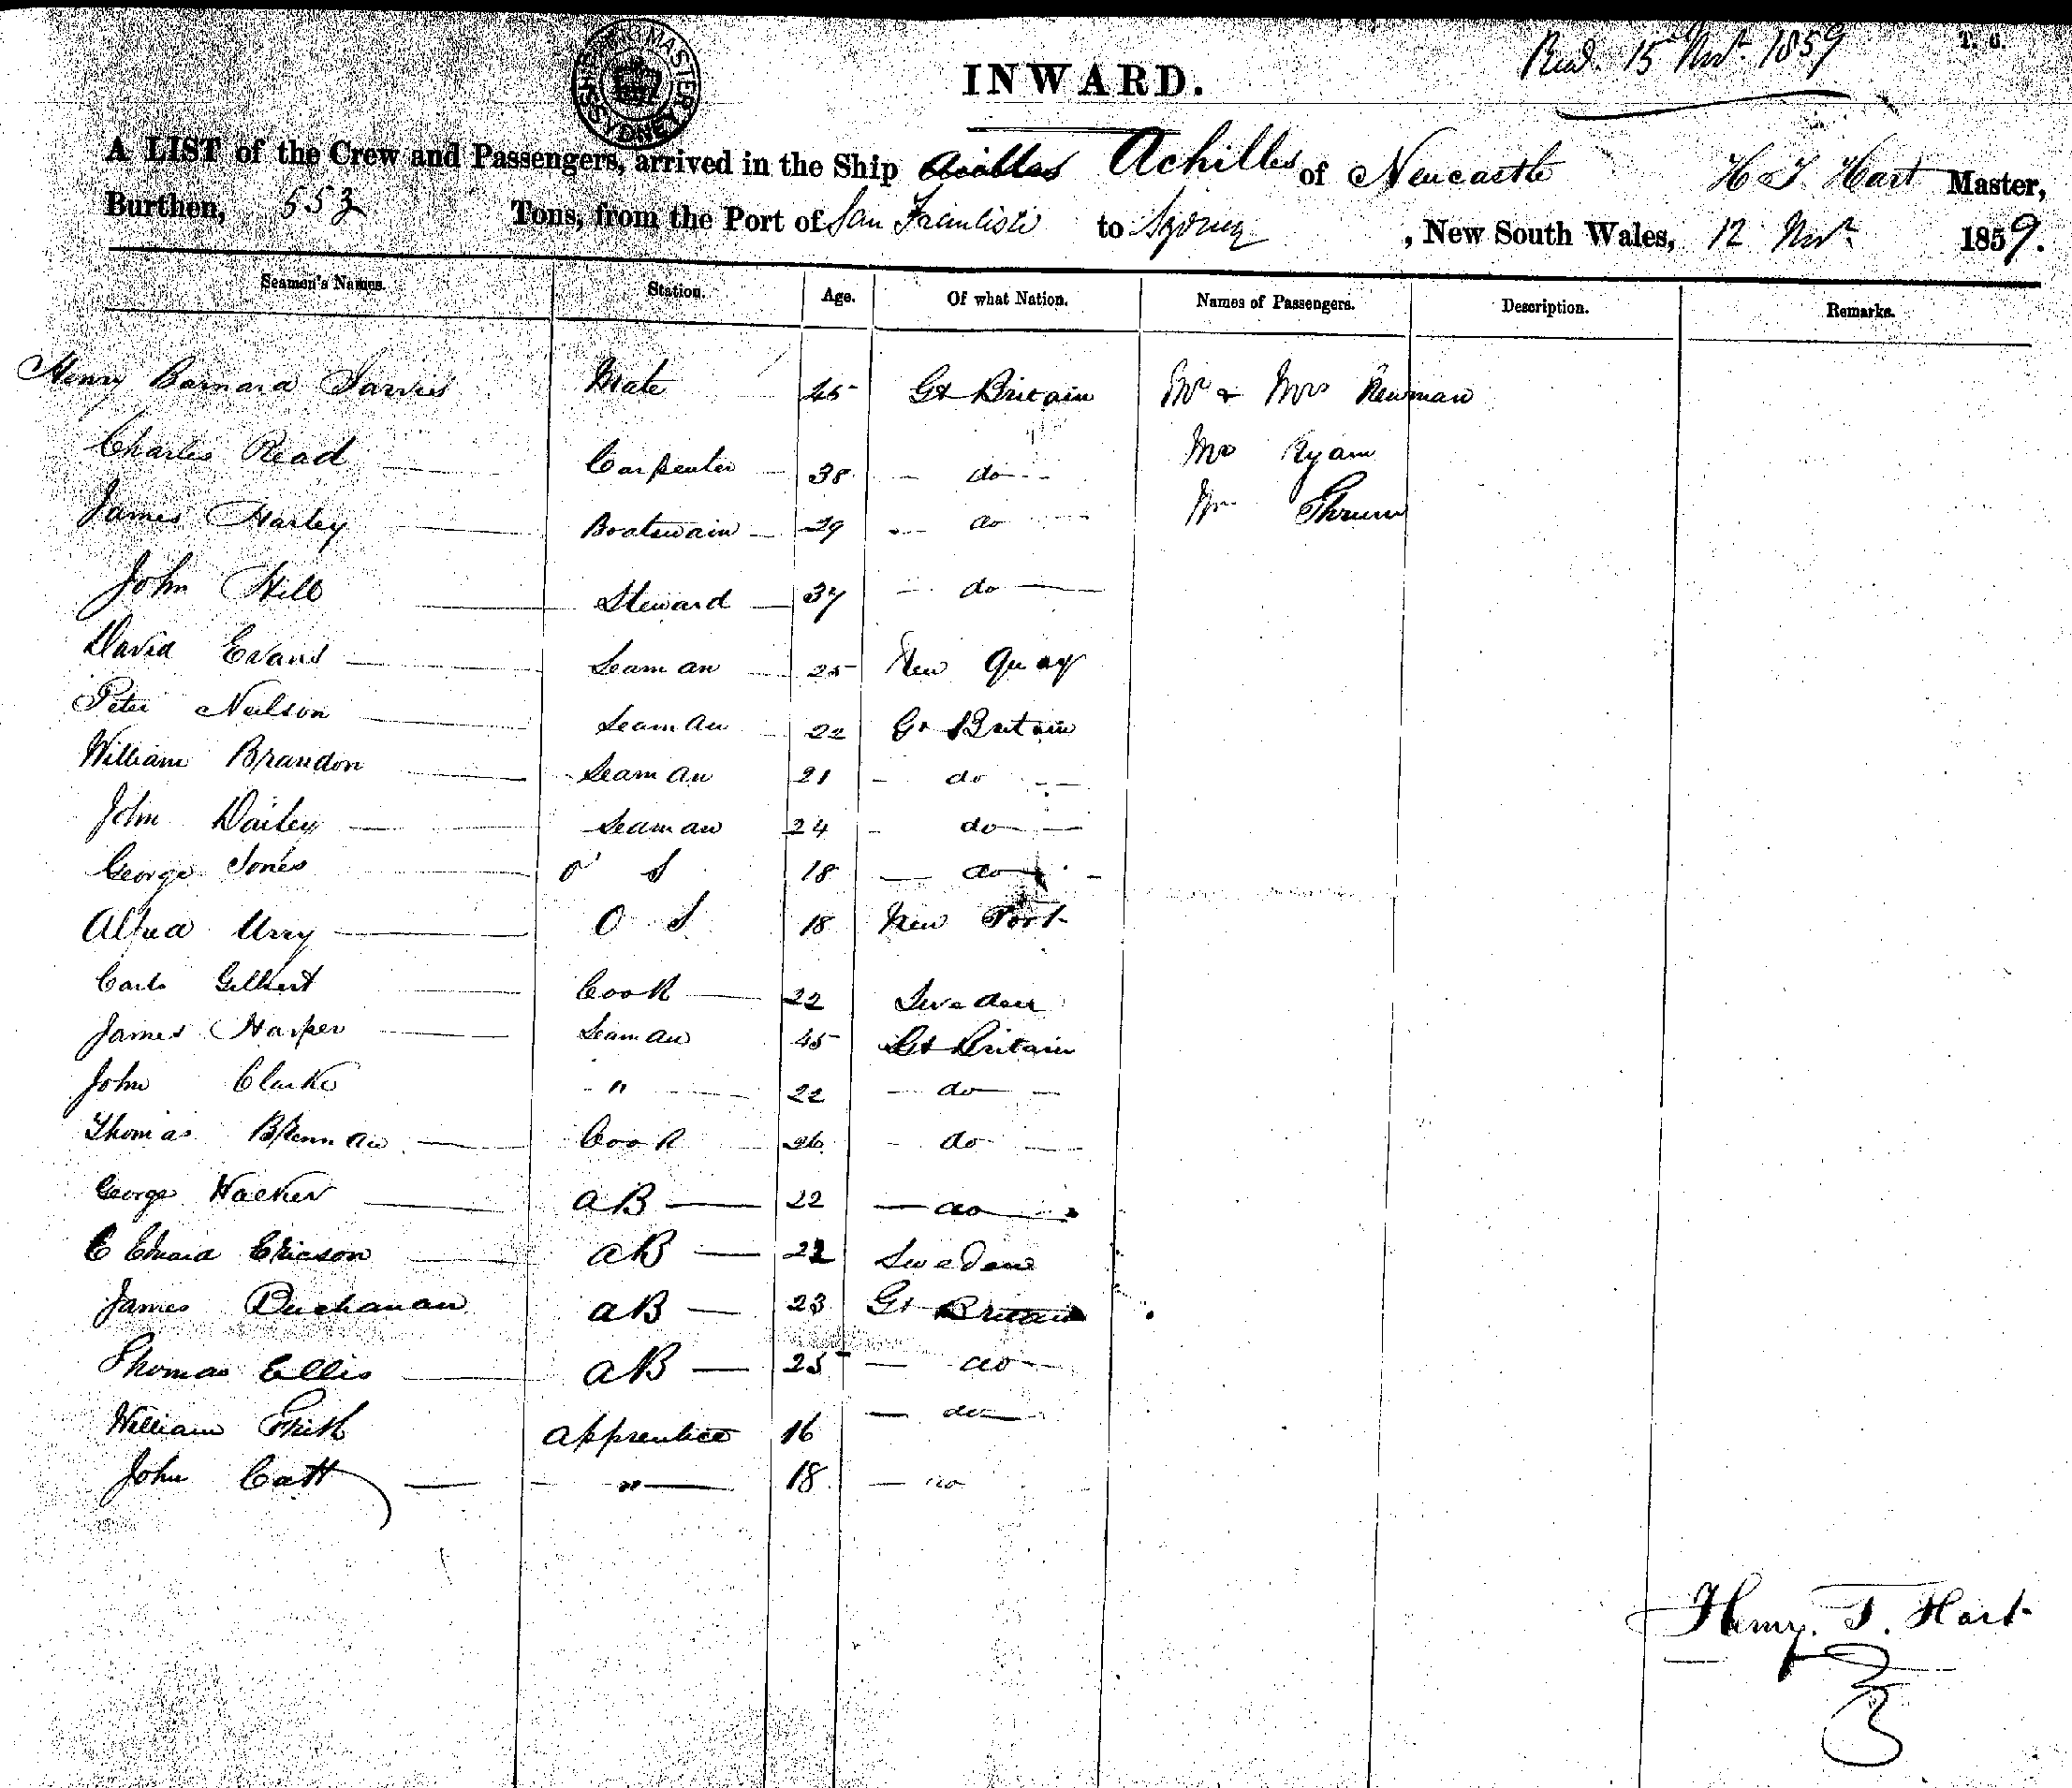 Recd. 15th Novr. 1859
T. G.
SHIPPING MASTER SYDNEY
INWARD.
A LIST of the Crew and Passengers, arrived in the Ship Achilles of Newcastle H T Hart Master,
Burthen, 553 Tons, from the Port of San Francisco to Sydney, New South Wales, 12 Novr. 1859.
Seamen's Names. Station. Age. Of what Nation. Names of Passengers. Description. Remarks.
Henry Barnard Jarvis Mate 45 Gt Britain Mr & Mrs Newman
Charles Read Carpenter 38 do Mr Ryam
James Harley Boatswain 29 do Thrum
John Hill Steward 37 do
David Evans Seaman 25 New Quay
Peter Neilson Seaman 22 Gt Britain
William Brandon Seaman 21 do
John Dailey Seaman 24 do
George Jones O S 18 do
Alfred Urry O S 18 New Port
Carlo Gilbert Cook 22 Sweden
James Harper Seaman 45 Gt Britain
John Clarke " 22 do
Thomas Brennan Cook 26 do
George Walker AB 22 do
C Edward Ericson AB 22 Sweden
James Buchanan AB 23 Gt Britain
Thomas Ellis AB 25 do
William apprentice 16 do
John Catt " 18 do
Henry. T. Hart